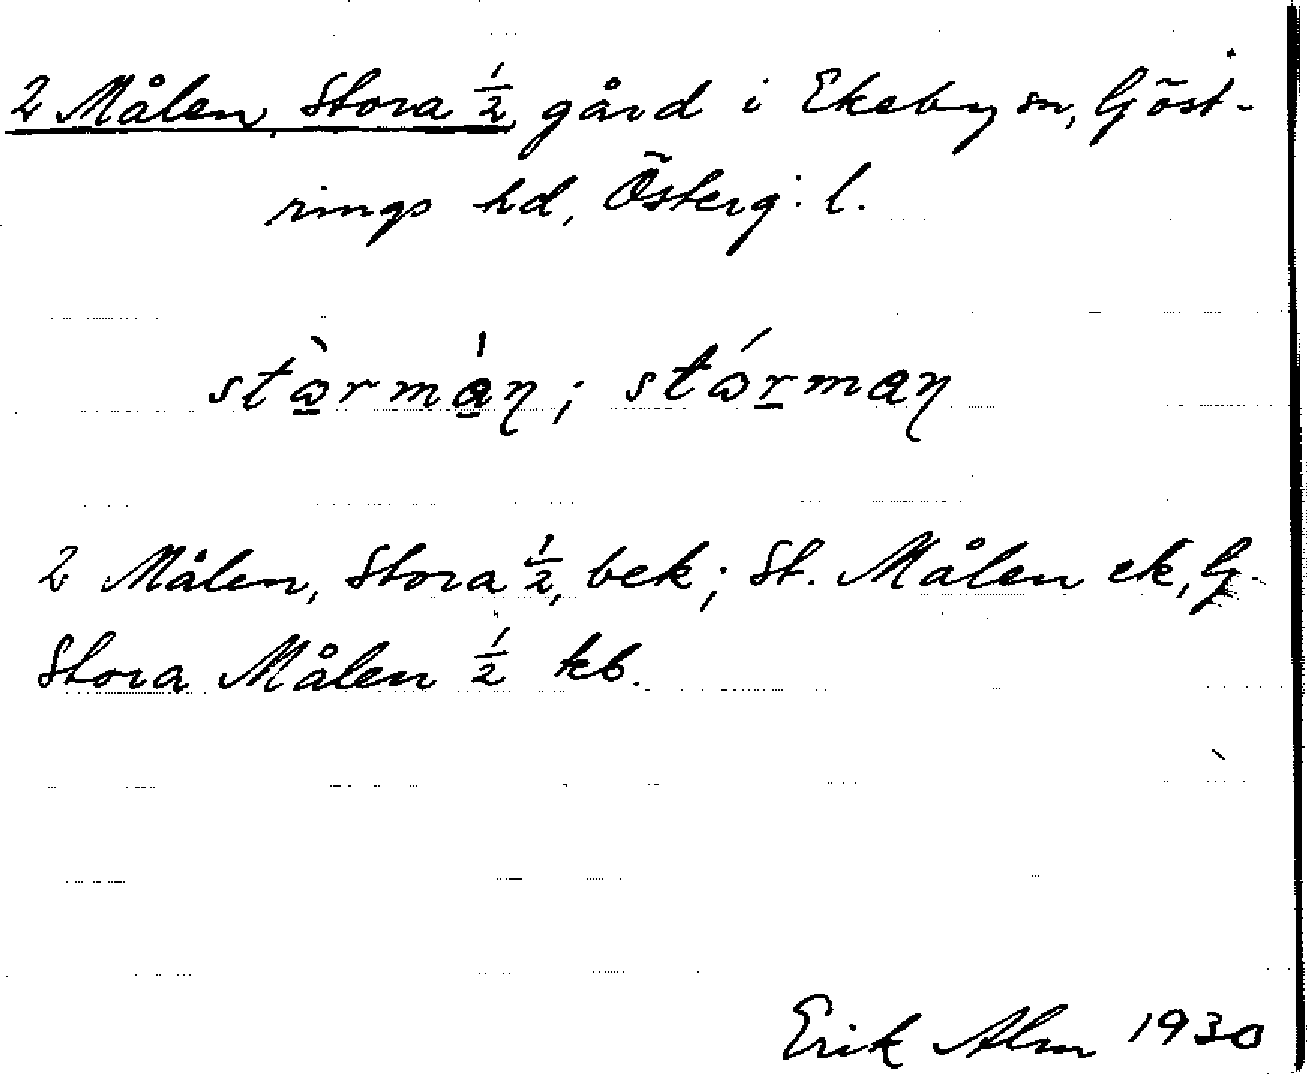 2 Målen, Stora ½, gård i Ekeby sn, Göst-
rings hd, Österg:l.
2 Målen, Stora ½, bek; St. Målen ek, G.
Stora Målen ½ kb.
Erik Alm 1930